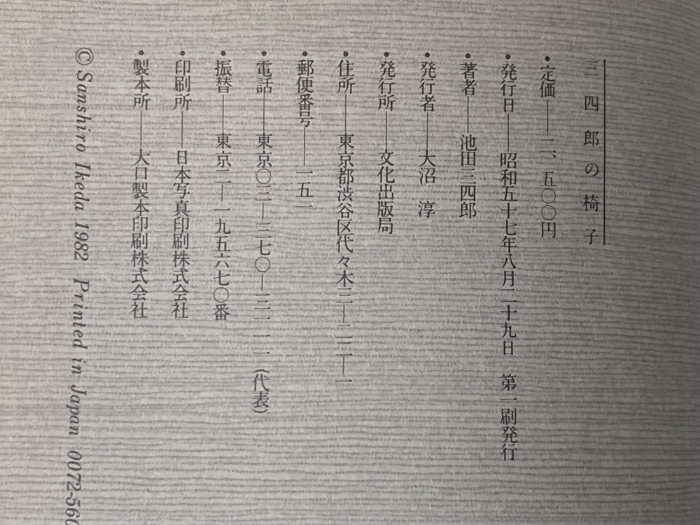 三四郎の椅子
・定価――二、五〇〇円
・発行日――昭和五十七年八月二十九日　第一刷発行
・著者――池田三四郎
・発行者――大沼　淳
・発行所――文化出版局
・住所――東京都渋谷区代々木三―二二―一
・郵便番号――一五一
・電話――東京〇三―三七〇―三一一一（代表）
・振替――東京二―一九五六七〇番
・印刷所――日本写真印刷株式会社
・製本所――大口製本印刷株式会社
© Sanshiro Ikeda 1982　Printed in Japan　0072-560